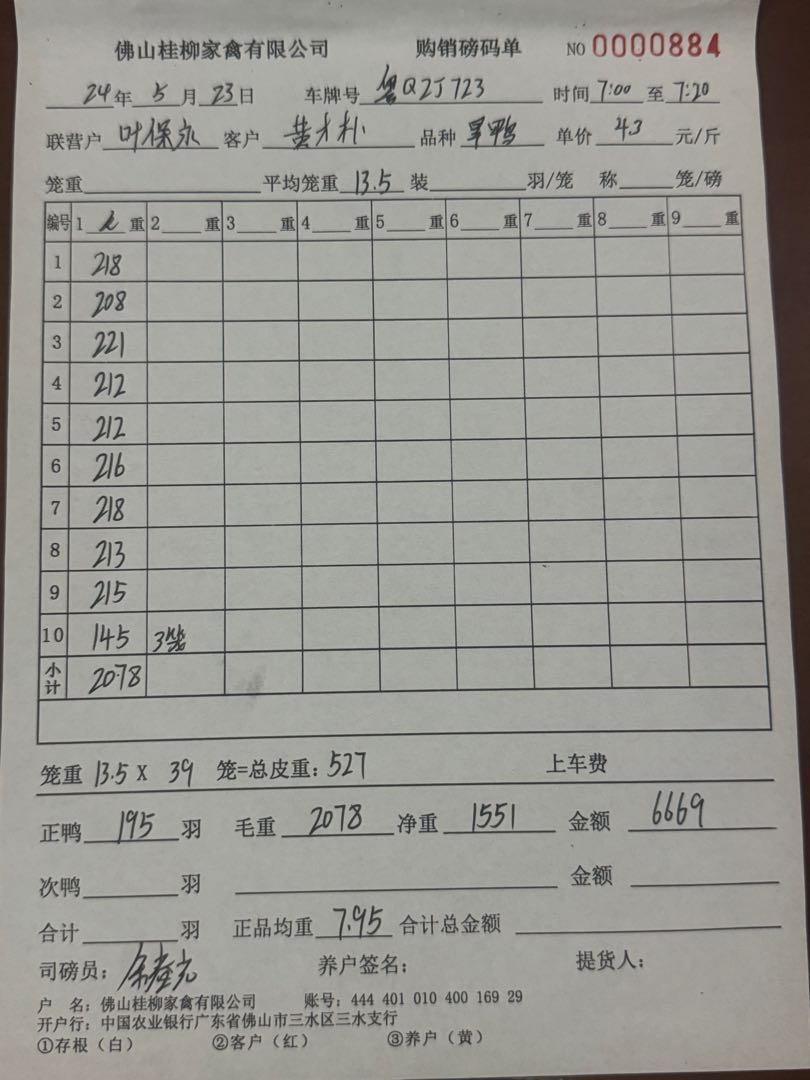 佛山桂柳家禽有限公司 购销磅码单 NO 0000884
24年 5 月 23日 车牌号 粤Q2J723 时间 7:00 至 7:20
联营户 叶保永 客户 黄才朴 品种 旱鸭 单价 4.3 元/斤
笼重 平均笼重 13.5 装 羽/笼 称 笼/磅
编号 1 重 2 重 3 重 4 重 5 重 6 重 7 重 8 重 9 重
1 218
2 208
3 221
4 212
5 212
6 216
7 218
8 213
9 215
10 145 3
小计 2078
笼重 13.5 X 39 笼=总皮重: 527 上车费
正鸭 195 羽 毛重 2078 净重 1551 金额 6669
次鸭 羽 金额
合计 羽 正品均重 7.95 合计总金额
司磅员: 养户签名: 提货人:
户 名: 佛山桂柳家禽有限公司 账号: 444 401 010 400 169 29
开户行: 中国农业银行广东省佛山市三水区三水支行
①存根（白） ②客户（红） ③养户（黄）